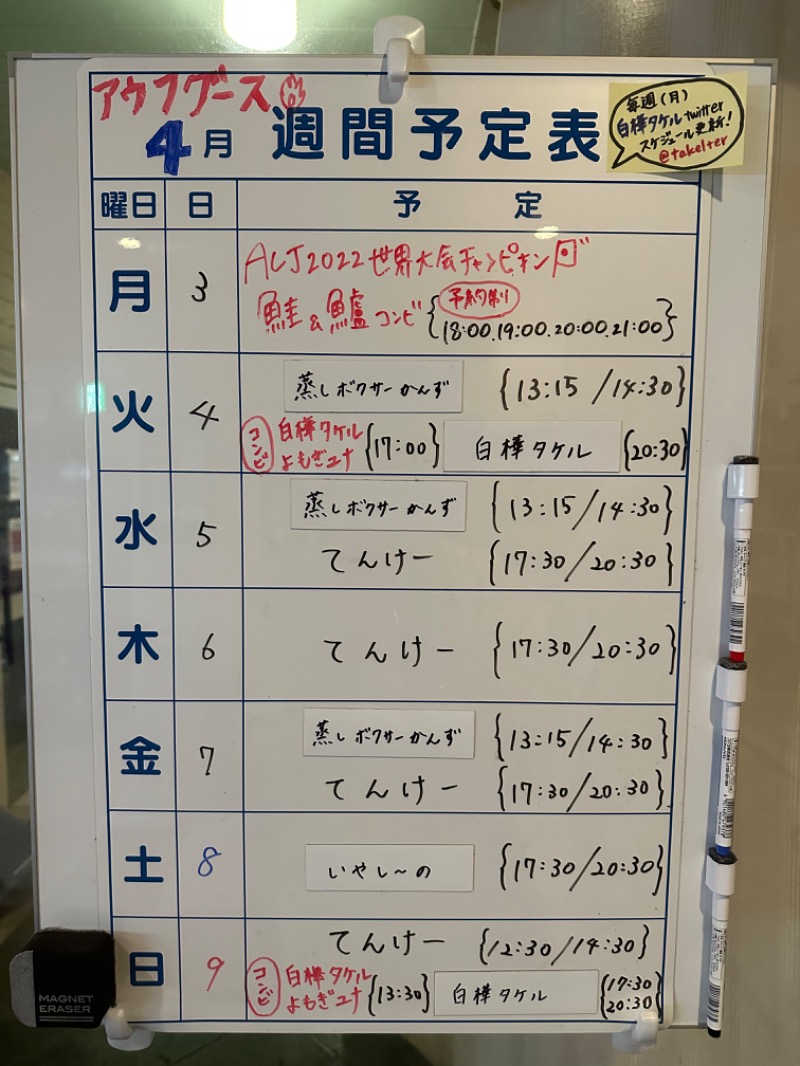 アウフグース
4月 週間予定表
毎週(月)
白樺タケルtwitter
スケジュール更新!
@takelter
曜日 日 予定
月 3 ALJ2022世界大会チャンピオン
鮭&鱸コンビ 予約制 {18:00.19:00.20:00.21:00}
火 4 蒸しボクサーかんず {13:15/14:30}
コンビ 白樺タケル よもぎユナ {17:00} 白樺タケル {20:30}
水 5 蒸しボクサーかんず {13:15/14:30}
てんけー {17:30/20:30}
木 6 てんけー {17:30/20:30}
金 7 蒸しボクサーかんず {13:15/14:30}
てんけー {17:30/20:30}
土 8 いやし~の {17:30/20:30}
日 9 てんけー {12:30/14:30}
コンビ 白樺タケル よもぎユナ {13:30} 白樺タケル {17:30 20:30}
MAGNET
ERASER